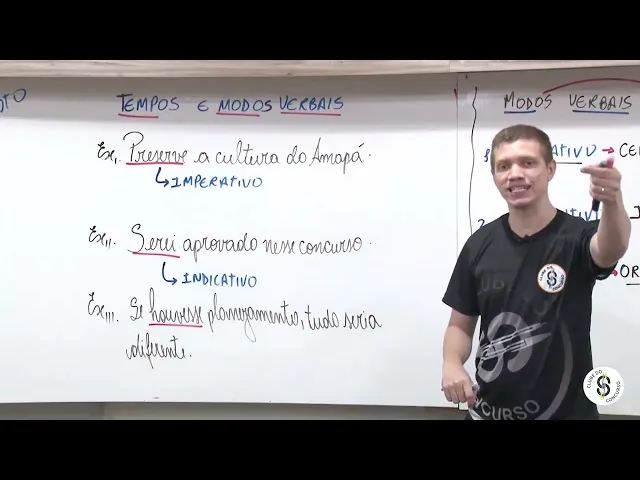 TEMPOS E MODOS VERBAIS
Ex I. Preserve a cultura do Amapá.
IMPERATIVO
Ex II. Serei aprovado nesse concurso.
INDICATIVO
Ex III. Se houvesse planejamento, tudo seria
diferente.
MODOS VERBAIS
CLUBE DO
CONCURSO